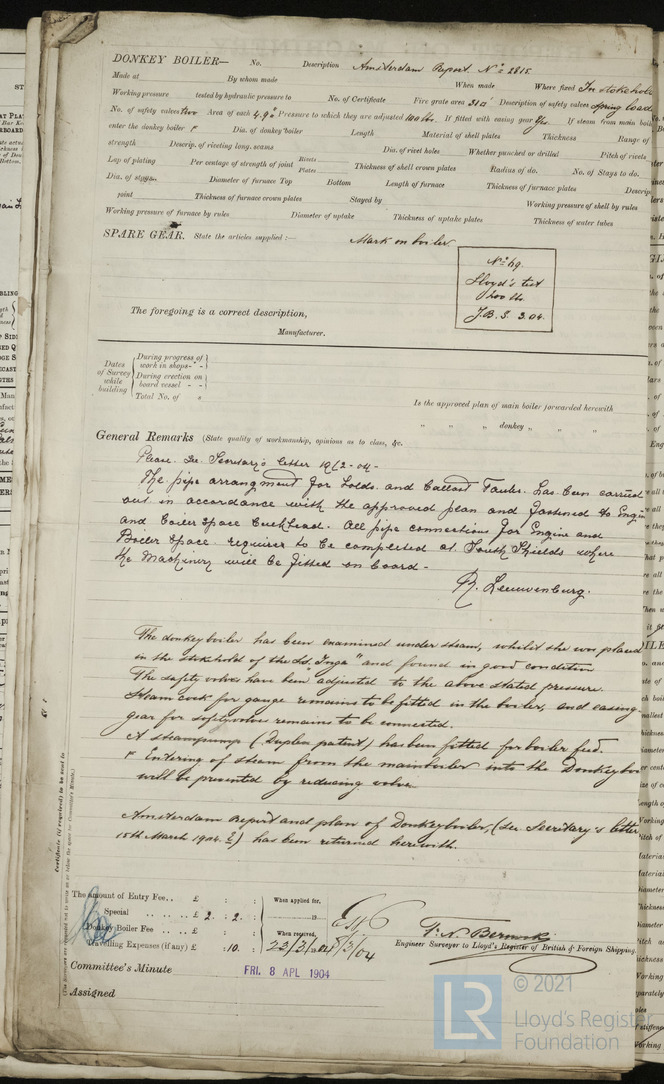 DONKEY BOILER— No. Description Amsterdam Report No 2815
Made at By whom made When made Where fixed In stokehold
Working pressure tested by hydraulic pressure to No. of Certificate Fire grate area Description of safety valves Spring load
No. of safety valves two Area of each 4.9 Pressure to which they are adjusted 100 lbs. If fitted with easing gear Yes If steam from main boil
enter the donkey boiler Dia. of donkey boiler Length Material of shell plates Thickness Range of
strength Descrip. of riveting long. seams Dia. of rivet holes Whether punched or drilled Pitch of rivets
Lap of plating Per centage of strength of joint Rivets Plates Thickness of shell crown plates Radius of do. No. of Stays to do.
Dia. of stays Diameter of furnace Top Bottom Length of furnace Thickness of furnace plates Descrip
joint Thickness of furnace crown plates Stayed by Working pressure of shell by rules
Working pressure of furnace by rules Diameter of uptake Thickness of uptake plates Thickness of water tubes
SPARE GEAR. State the articles supplied :— Mark on boiler
No 49.
Lloyd's test
200 lbs
J.B.S. 3.04.
The foregoing is a correct description,
Manufacturer.
Dates of Survey while building
During progress of work in shops - -
During erection on board vessel - -
Total No. of s
Is the approved plan of main boiler forwarded herewith
" " " donkey " " "
General Remarks (State quality of workmanship, opinions as to class, &c.
Please see Secretary's letter 19/2-04-
The pipe arrangment for holds and Ballast Tanks has been carried
out in accordance with the approved plan and fastened to Engine
and Boiler space Bulkhead. All pipe connections for Engine and
Boiler Space requires to be completed at South Shields where
the Machinery will be fitted on board -
R. Leeuwenburg.
The donkeyboiler has been examined under steam, whilst she was placed
in the stokehold of the s.s. "Inga" and found in good condition
The safety valves have been adjusted to the above stated pressure.
Steam cock for gauge remains to be fitted in the boiler, and easing
gear for safetyvalves remains to be connected.
A steampump (Duplex patent) has been fitted for boiler feed.
Entering of steam from the mainboiler into the Donkeyboi
will be prevented by reducing valve.
Amsterdam Report and plan of Donkeyboiler, (See Secretary's letter
15th March 1904) has been returned herewith.
The amount of Entry Fee.. £ : : When applied for,
Special .. .. .. £ 2 : 2 : 19
Donkey Boiler Fee .. .. £ : : When received,
Travelling Expenses (if any) £ : 10 : 23/3/04
Engineer Surveyor to Lloyd's Register of British & Foreign Shipping.
Committee's Minute FRI. 8 APL 1904
Assigned
Certificate (if required) to be sent to
LR © 2021
Lloyd's Register
Foundation